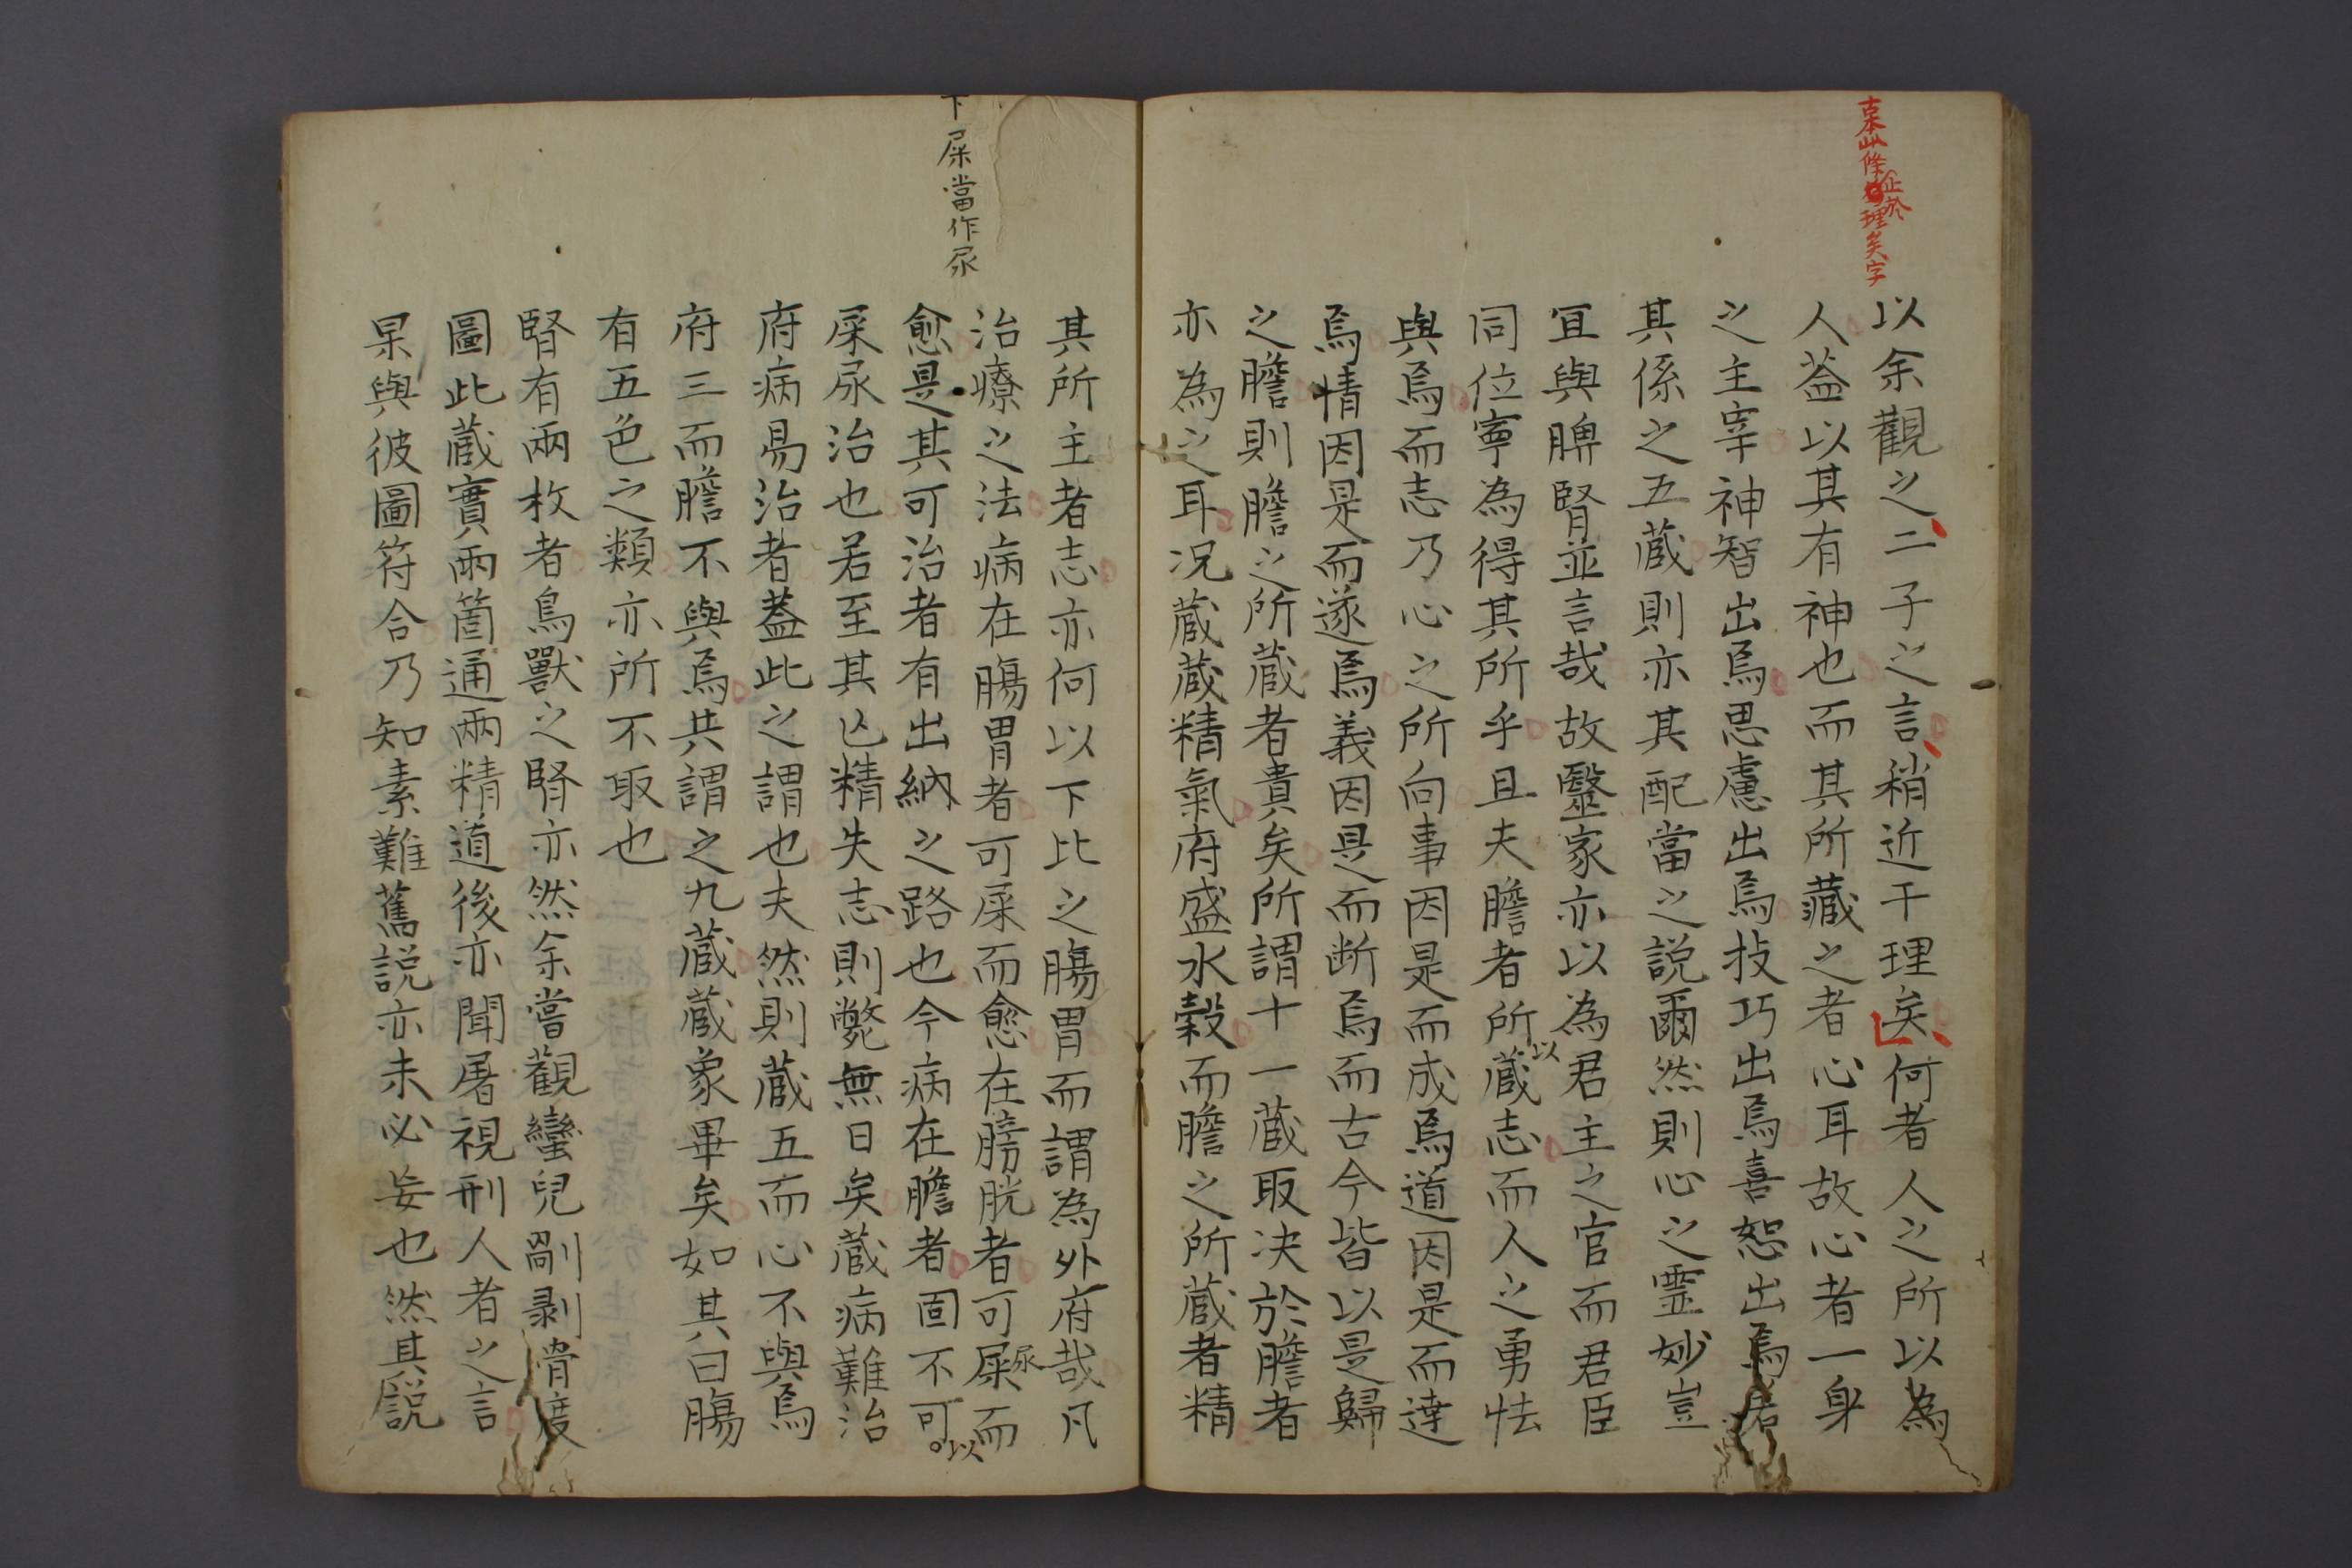 以余觀之二子之言稍近于理矣何者人之所以為
人葢以其有神也而其所藏之者心耳故心者一身
之主宰神智出焉思慮出焉技巧出焉喜怒出焉若
其係之五蔵則亦其配當之説爾然則心之霊妙豈
冝與脾腎並言哉故毉家亦以為君主之官而君臣
同位寧為得其所乎且夫膽者所以蔵志而人之勇怯
與焉而志乃心之所向事因是而成焉道因是而達
焉情因是而遂焉義因是而断焉而古今皆以是歸
之膽則膽之所蔵者貴矣所謂十一蔵取决於膽者
亦為之耳况蔵蔵精氣府盛水穀而膽之所蔵者精
下屎當作尿
其所主者志亦何以下比之腸胃而謂為外府哉凡
治療之法病在腸胃者可屎而愈在膀胱者可屎尿而
愈是其可治者有出納之路也今病在膽者固不可以
屎尿治也若至其亡精失志則斃無日矣蔵病難治
府病易治者葢此之謂也夫然則蔵五而心不與焉
府三而膽不與焉共謂之九蔵蔵象畢矣如其曰腸
有五色之類亦所不取也
腎有兩枚者鳥獸之腎亦然余嘗觀蠻兒剮剥骨度
圖此蔵實兩箇通兩精道後亦聞屠視刑人者之言
果與彼圖符合乃知素難舊説亦未必妄也然其説